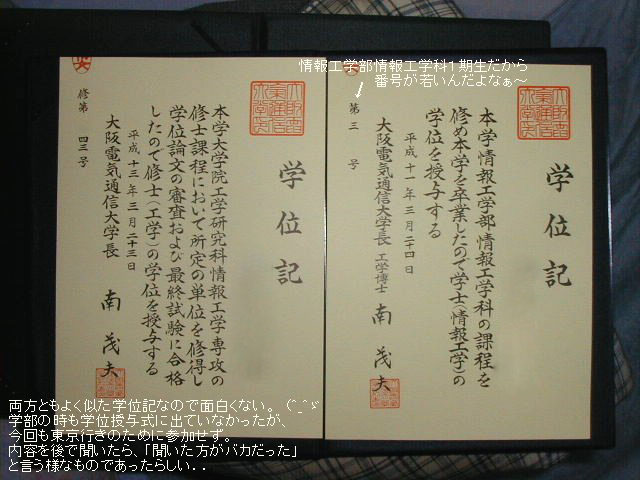 情報工学部情報工学科１期生だから
番号が若いんだよなぁ～
第三号
学位記
本学情報工学部情報工学科の課程を
修め本学を卒業したので学士（情報工学）の
学位を授与する
平成十一年三月二十四日
大阪電気通信大学長 工学博士 南茂夫
修第四三号
学位記
本学大学院工学研究科情報工学専攻の
修士課程において所定の単位を修得し
学位論文の審査および最終試験に合格
したので修士（工学）の学位を授与する
平成十三年三月二十三日
大阪電気通信大学長 南茂夫
両方ともよく似た学位記なので面白くない。（^_^ゞ
学部の時も学位授与式に出ていなかったが、
今回も東京行きのために参加せず。
内容を後で聞いたら、「聞いた方がバカだった」
と言う様なものであったらしい．．